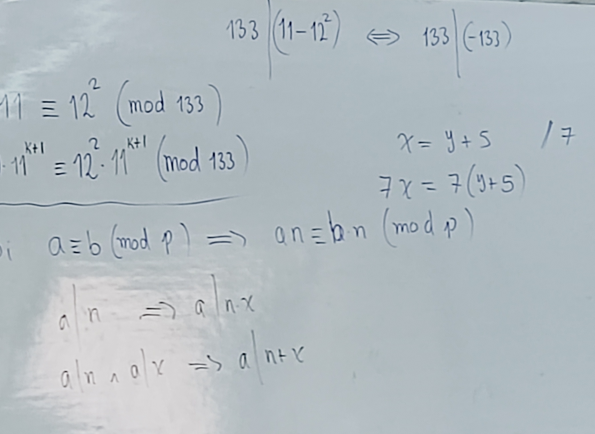 133 | (11-12²) ⇔ 133 | (-133)
11 ≡ 12² (mod 133)
· 11ᵏ⁺¹ ≡ 12² · 11ᵏ⁺¹ (mod 133)
x = y + 5 / 7
7x = 7(y+5)
a ≡ b (mod p) ⟹ an ≡ bn (mod p)
a | n ⟹ a | n·x
a | n ∧ a | x ⟹ a | n+x